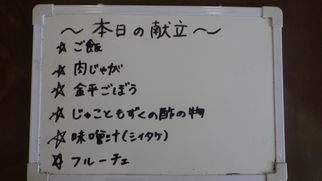 ～本日の献立～
☆ご飯
☆肉じゃが
☆金平ごぼう
☆じゃこともずくの酢の物
☆味噌汁(シイタケ)
☆フルーチェ